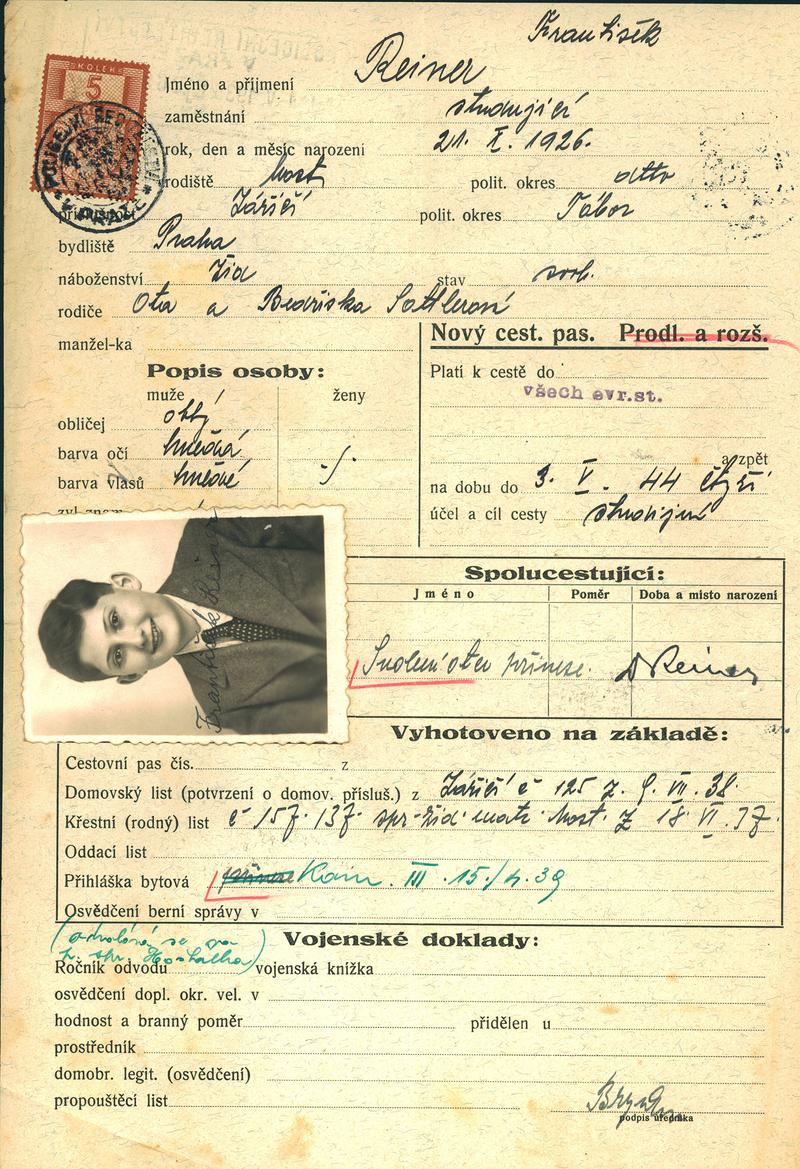 František
KOLEK
5
Jméno a příjmení Reiner
zaměstnání studující
rok, den a měsíc narození 21. X. 1926.
rodiště Most polit. okres dtto
příslušnost Záříčí polit. okres Tábor
bydliště Praha
náboženství žid stav svob.
rodiče Ota a Bedřiška Sattlerová
manžel-ka
Nový cest. pas. Prodl. a rozš.
Popis osoby:
muže ženy
obličej oblý
barva očí hnědá
barva vlasů hnědé
zvl. znam.
Platí k cestě do
všech evr.st.
a zpět
na dobu do 3. V. 44 čtyři
účel a cíl cesty studijní
František Reiner
Spolucestující:
Jméno Poměr Doba a místo narození
Svolení otec přinese. Reiner
Vyhotoveno na základě:
Cestovní pas čís. z
Domovský list (potvrzení o domov. přísluš.) z Záříčí č 125 z 9. VII. 38.
Křestní (rodný) list č 157.137 žid. matr. Most. z 18 VI. 37.
Oddací list
Přihláška bytová III. 15./4. 39
Osvědčení berní správy v
Vojenské doklady:
Ročník odvodu vojenská knížka
osvědčení dopl. okr. vel. v
hodnost a branný poměr přidělen u
prostředník
domobr. legit. (osvědčení)
propouštěcí list
podpis úředníka